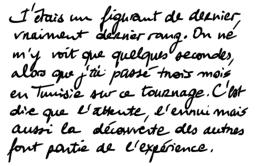 J'étais un figurant de dernier,
vraiment dernier rang. On ne
m'y voit que quelques secondes,
alors que j'ai passé trois mois
en Tunisie sur ce tournage. C'est
dire que l'attente, l'ennui mais
aussi la découverte des autres
font partie de l'expérience.